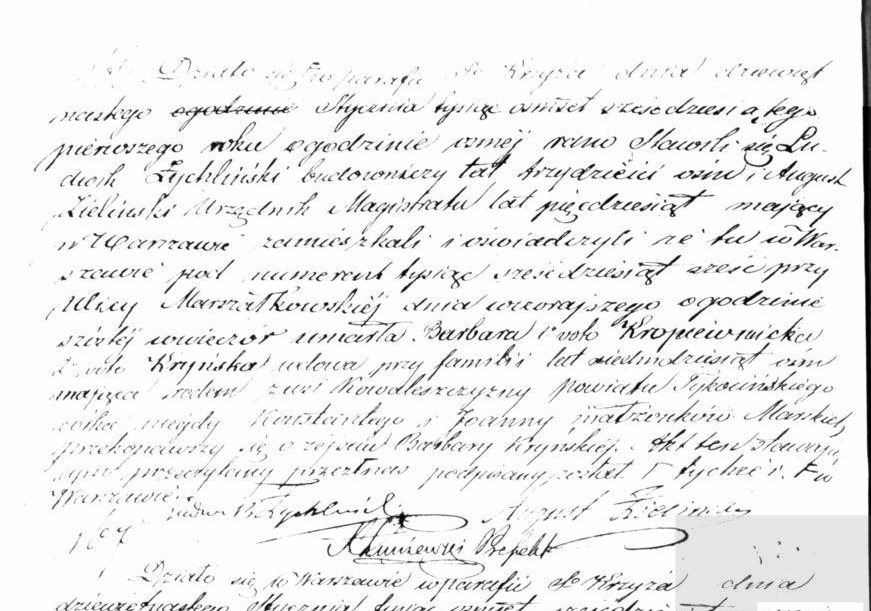 Działo się w parafii Sº Krzyża dnia dziewięt
nastego ogodzinie Stycznia tysiąc ośmset sześćdziesiątego
pierwszego roku o godzinie ósmej rano Stawili się Lu-
dwik Żychliński budowniczy lat trzydzieści ośm i August
Zieliński Urzędnik Magistratu lat pięćdziesiąt mający
w Warszawie zamieszkali i oświadczyli że tu w War-
szawie pod numerem tysiąc sześćdziesiąt sześć przy
Ulicy Marszałkowskiéj dnia wczorajszego o godzinie
szóstéj wieczór umarła Barbara 1º voto Kropiewnicka
2º voto Kryńska wdowa przy familii lat siedmdziesiąt ośm
mająca rodem z wsi Kowaleszczyzny powiatu Tykocińskiego
córka niegdy Konstantego i Joanny małżonków Marskich
przekonawszy się o zejściu Barbary Kryńskiéj. Akt ten stawają
cym przeczytany przez nas podpisany został
Warszawie.
Żychliński August Zieliński
167
Prefekt
Działo się w Warszawie w parafii Sº Krzyża dnia
dziewiętnastego Stycznia tysiąc ośmset